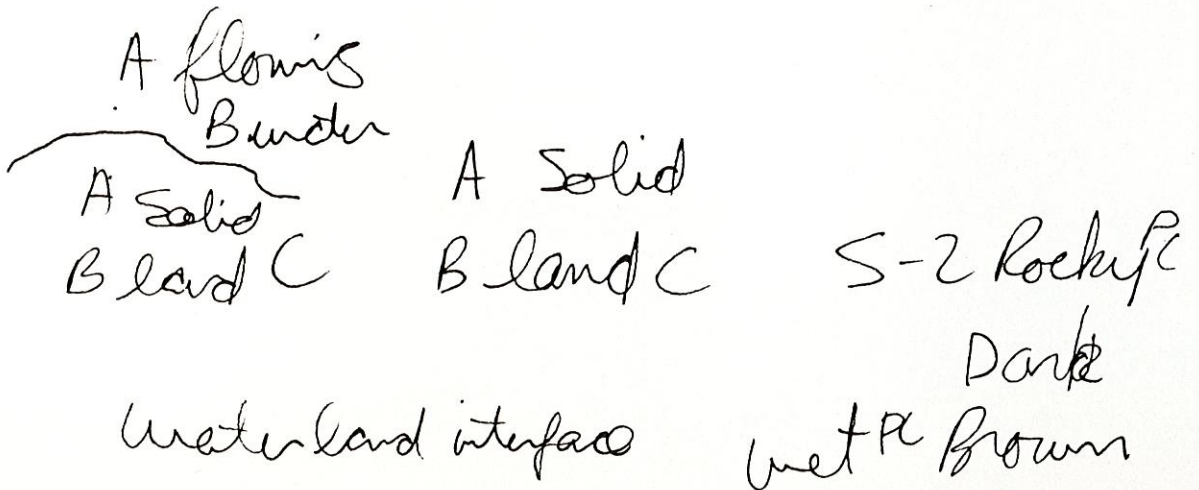 A flowing
B water
A Solid
B land C
A Solid
B land C
S-2 Rocky PC
Dark
water land interface
wet PC Brown